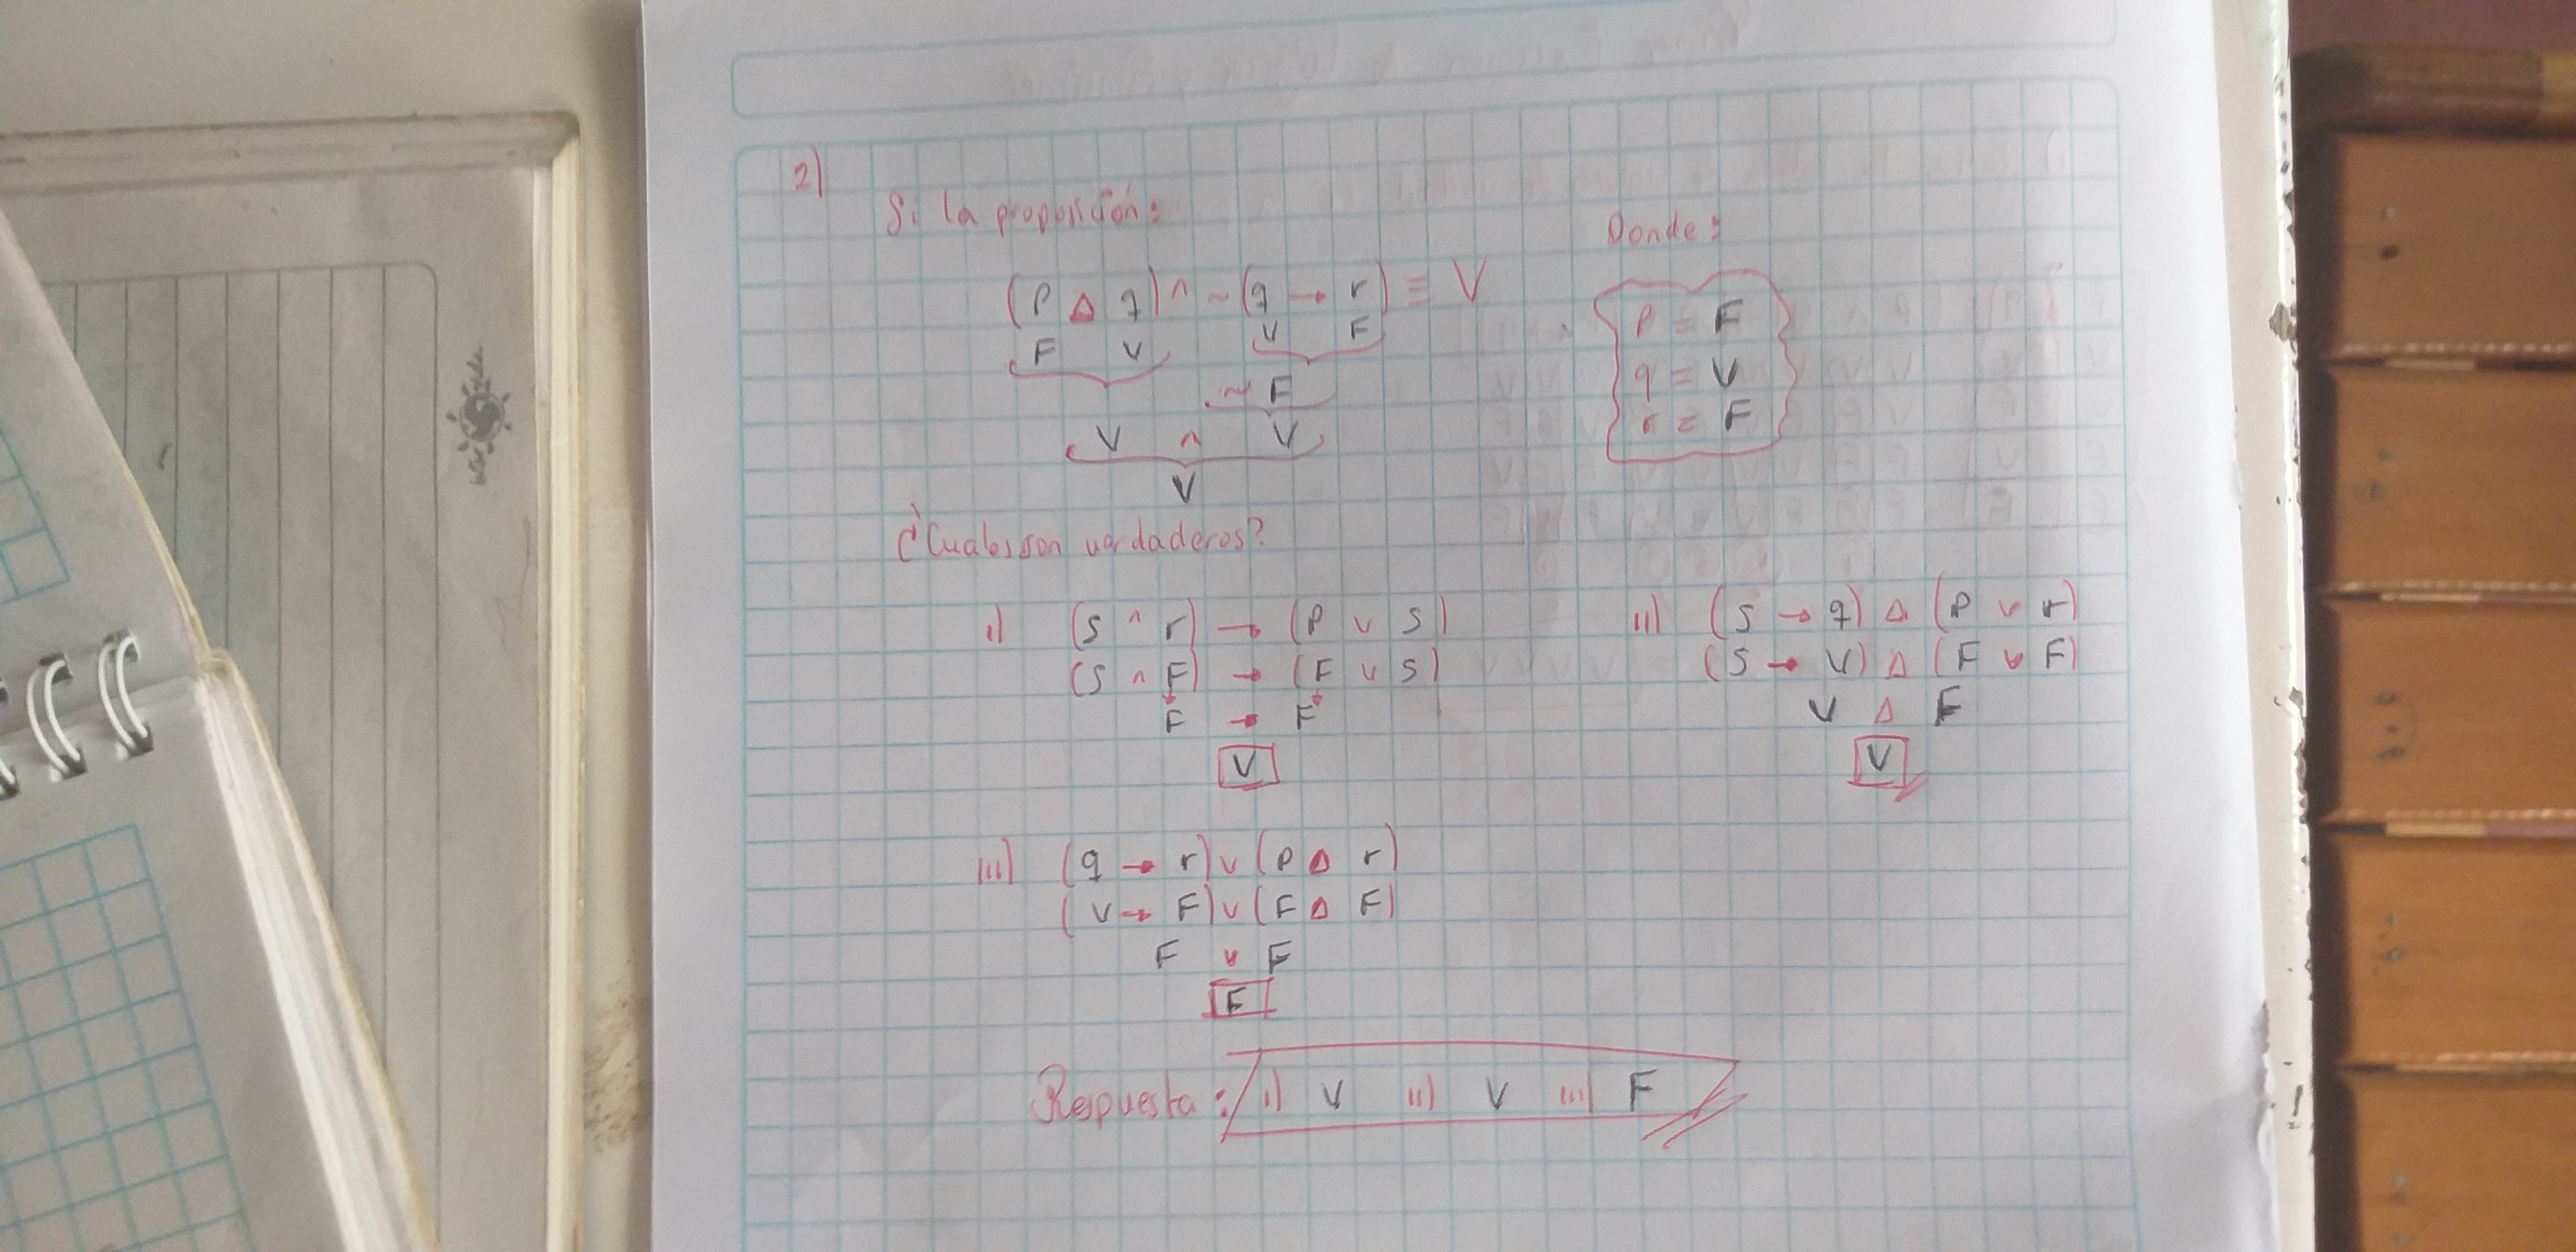 2)
Si la proposición:
Donde:
(p Δ q) ^ ~ (q → r) ≡ V
F V V F
~ F
V ^ V
V
p = F
q = V
r = F
¿Cuales son verdaderos?
i) (S ^ r) → (P v S)
(S ^ F) → (F v S)
F → F
V
ii) (S → q) Δ (P v r)
(S → V) Δ (F v F)
V Δ F
V
iii) (q → r) v (P Δ r)
(V → F) v (F Δ F)
F v F
F
Respuesta: i) V ii) V iii) F